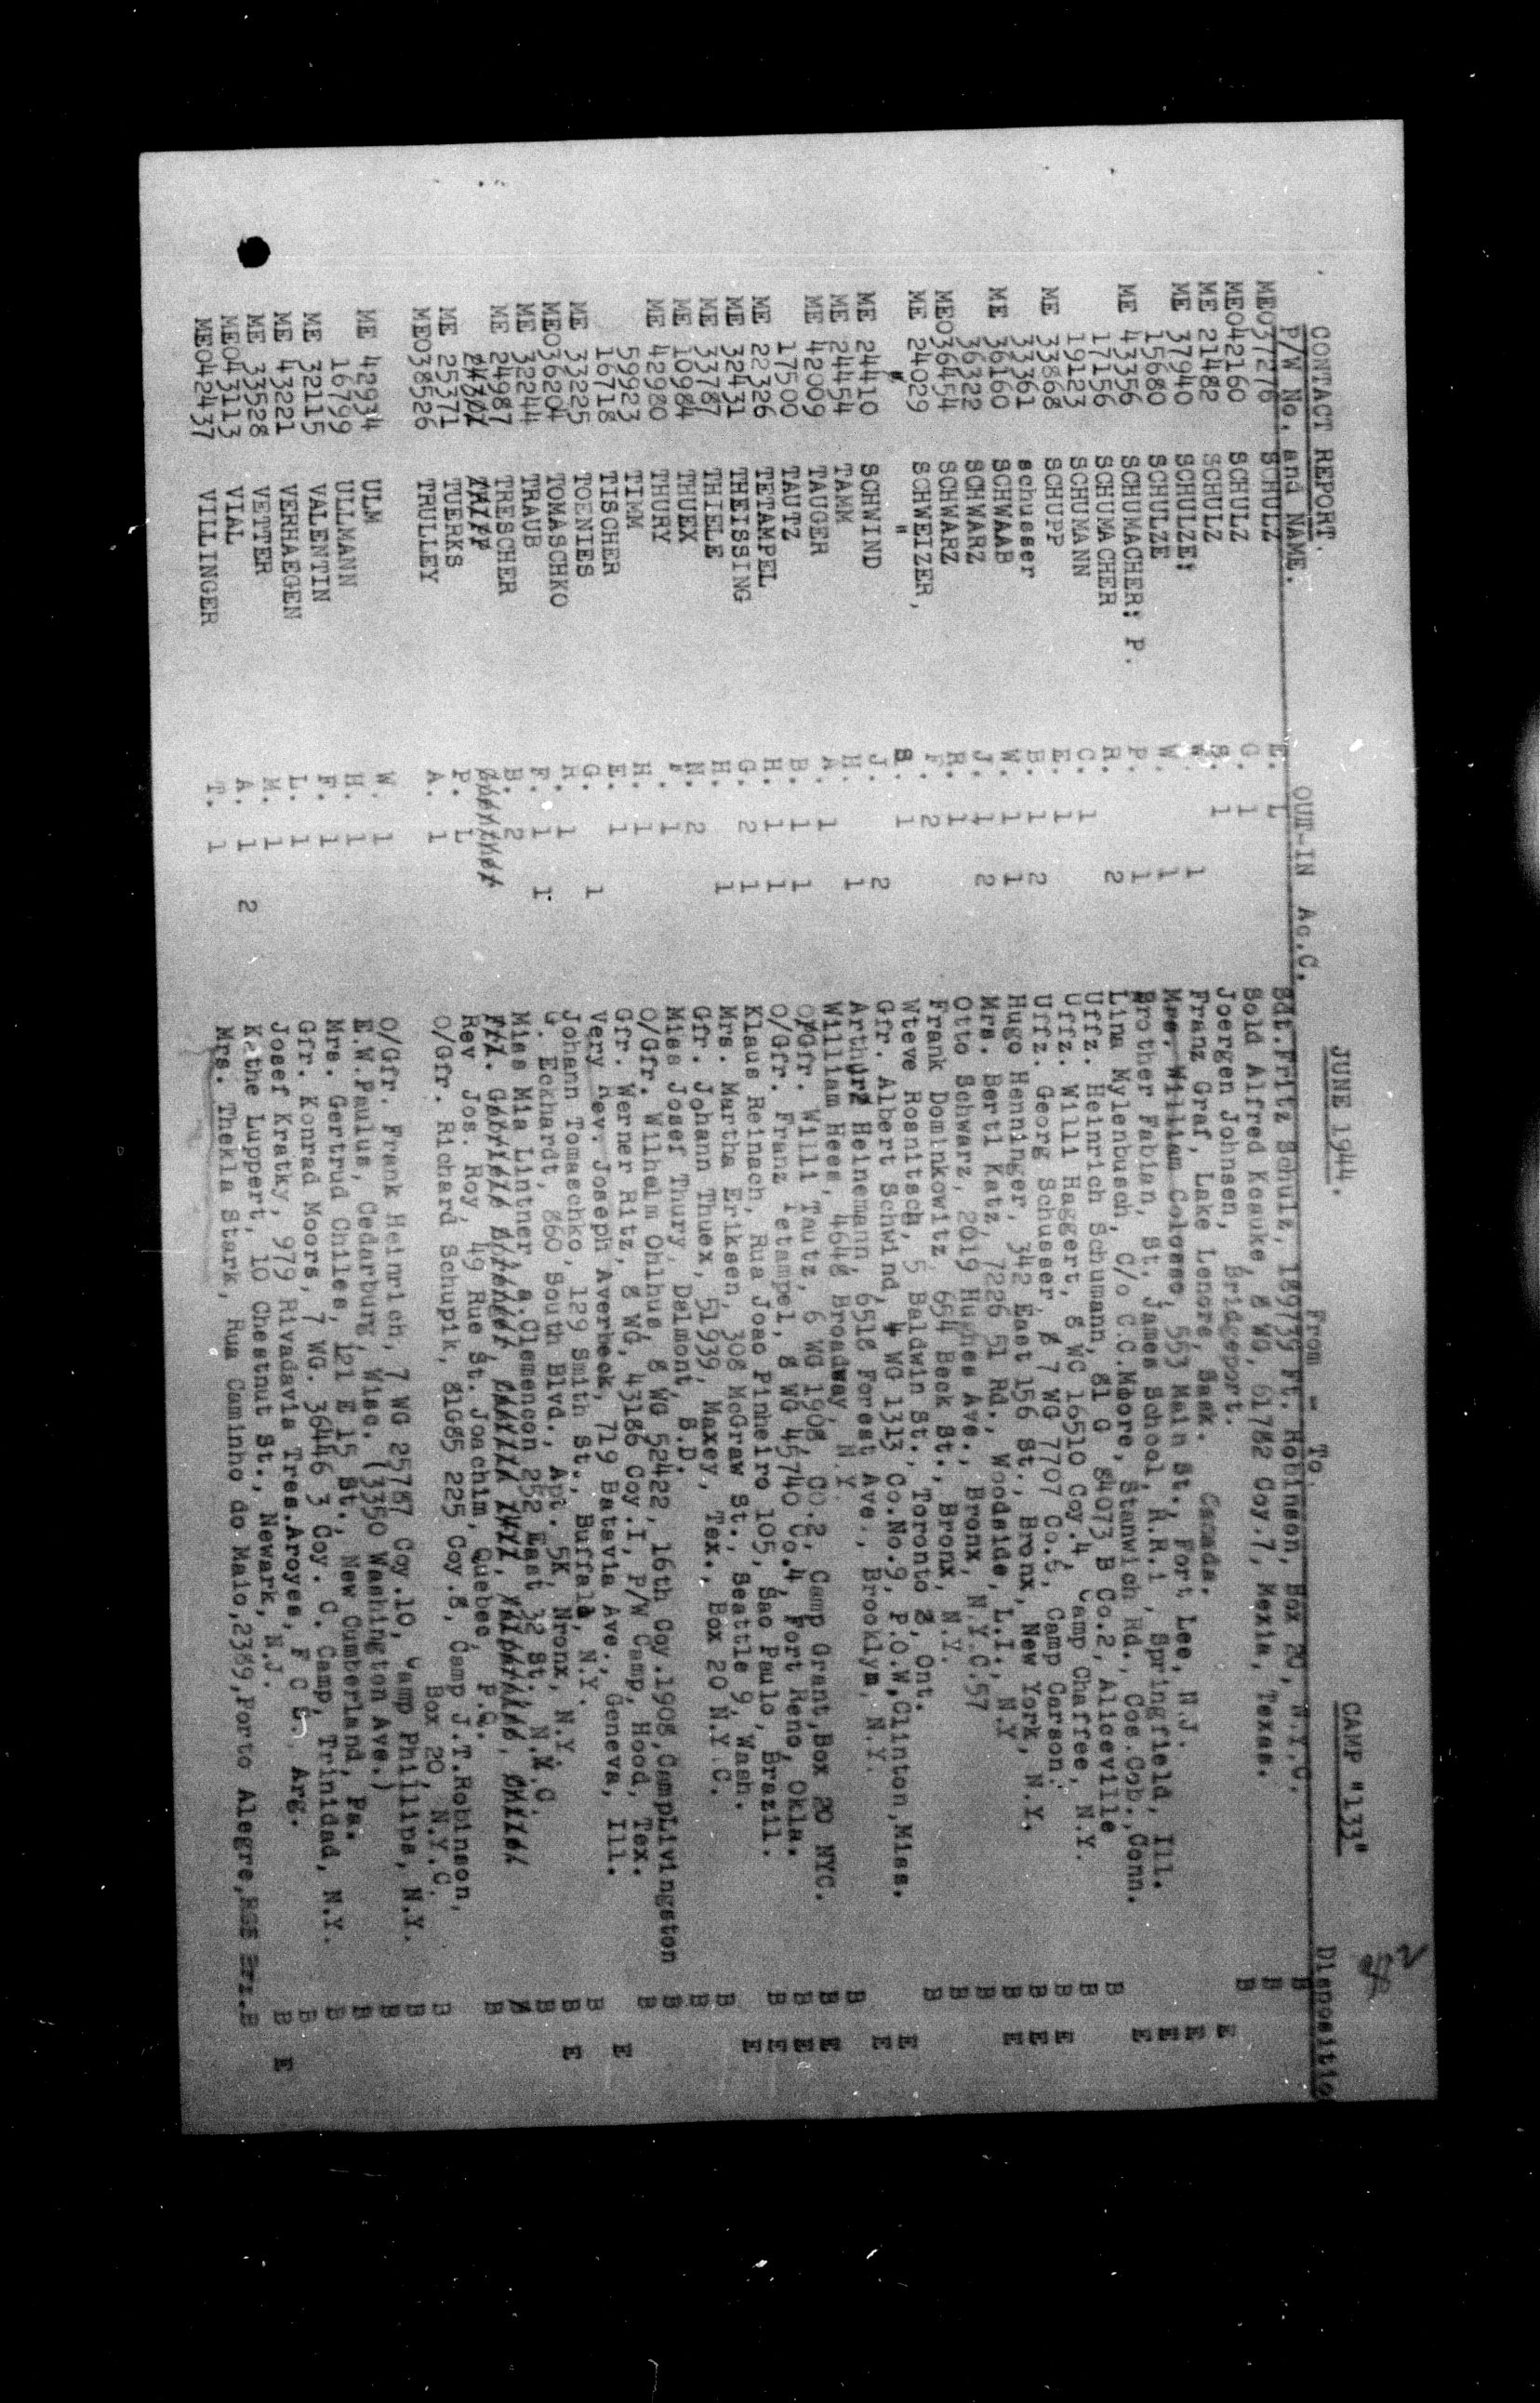 CONTACT REPORT. JUNE 1944. CAMP "133"
P/W No. and NAME. OUT-IN Ac.C. From - To. Dispositio
MEO37276 SCHULZ E. 1 Sdt.Fritz Schulz, 18973 Ft. Robinson, Box 20, N.Y.C. B
MEO42160 SCHULZ G. 1 Sold Alfred Kosauke, 8 WG, 61782 Coy.7, Mexia, Texas. B
ME 21482 SCHULZ S. 1 Joergen Johnsen, Bridgeport. B
ME 37940 SCHULZE; W. 1 Franz Graf, Lake Lenore, Sask. Canada. E
15680 SCHULZE W. 1 Mrs. William Colosse, 553 Main St., Fort Lee, N.J. E
ME 43356 SCHUMACHER; P. P. 1 Brother Fabian, St. James School, R.R.1, Springfield, Ill. E
17156 SCHUMACHER R. 2 Lina Mylenbusch, C/o C.C.Moore, Stanwich Rd., Cos.Cob.,Conn. E
19123 SCHUMANN C. 1 Uffz. Heinrich Schumann, 81 G 84073 B Co.2, Aliceville B
ME 33868 SCHUPP E. 1 Uffz. Willi Haggert, 8 WG 16510 Coy.4 Camp Chaffee, N.Y. B
33361 schusser B. 1 2 Uffz. Georg Schusser, 8 7 WG 7707 Co.6, Camp Carson. B E
ME 36160 SCHWAAB W. 1 1 Hugo Henninger, 342 East 156 St., Bronx, New York, N.Y. B E
36322 SCHWARZ J. 1 2 Mrs. Bertl Katz, 7226 51 Rd., Woodside, L.I., N.Y B E
MEO36454 SCHWARZ H. 1 Otto Schwarz, 2019 Hughes Ave., Bronx, N.Y.C.57 B
ME 24029 SCHWEIZER, F. 2 Frank Dominkowitz, 654 Beck St., Bronx, N.Y. B
" " 1 Wteve Rosnitsch, 5 Baldwin St., Toronto 2, Ont. B
ME 24410 SCHWIND J. 2 Gfr. Albert Schwind, 4 WG 1313 Co.No.9, P.O.W,Clinton,Miss. E
ME 24454 TAMM H. 1 Arthur Heinemann, 6518 Forest Ave., Brooklyn, N.Y. E
ME 42009 TAUGER A 1 William Hees, 4648 Broadway, N.Y. B
17500 TAUTZ B. 1 1 O/Gfr. Willi Tautz, 6 WG 1908 Co.2, Camp Grant,Box 20 NYC. B E
ME 22326 TETAMPEL H. 1 1 O/Gfr. Franz Tetampel, 8 WG 45740 Co.4, Fort Reno, Okla. B E
ME 32431 THEISSING G. 2 1 Klaus Reinach, Rua Joao Pinheiro 105, Sao Paulo, Brazil. B E
ME 33787 THIELE H. 1 Mrs. Martha Eriksen, 308 McGraw St., Seattle 9, Wash. E
ME 10984 THUEX N. 2 Gfr. Johann Thuex, 51939, Maxey, Tex., Box 20 N.Y.C. B
ME 42980 THURY " 1 Miss Josef Thury, Delmont, S.D. B
59923 TIMM H. 1 O/Gfr. Wilhelm Ohlhus, 8 WG 52422, 16th Coy.1908,CampLivingston B
16718 TISCHER E. 1 Gfr. Werner Ritz, 8 WG, 43186 Coy.I, P/W Camp, Hood, Tex. B
ME 33225 TOENIES G. 1 Very Rev. Joseph Averbeck, 719 Batavia Ave., Geneva, Ill. E
MEO36204 TOMASCHKO K. 1 Johann Tomaschko, 129 Smith St., Buffalo, N.Y. B
ME 32244 TRAUB F. 1 1 G. Eckhardt, 860 South Blvd., Apt. 5K, Nronx, N.Y. B E
ME 24987 TRESCHER B. 2 Miss Mia Lintner, a.Clemencon 252 East 32 St., N.Y.C. B
ME 25371 TUERKS P. 1 Rev Jos. Roy, 49 Rue St. Joachim, Quebec, P.Q. B
MEO38526 TRULLEY A. 1 O/Gfr. Richard Schupik, 81G85 225 Coy.8, Camp J.T.Robinson,
Box 20, N.Y.C. B
ME 42934 ULM W. 1 O/Gfr. Frank Heinrich, 7 WG 25787 Coy.10, Camp Phillips, N.Y. B
16799 ULLMANN H. 1 E.W.Paulus, Cedarburg, Wisc. (3350 Washington Ave.) B
ME 32115 VALENTIN F. 1 Mrs. Gertrud Chiles, 121 E 15 St., New Cumberland, Pa. B
ME 43221 VERHAEGEN L. 1 Gfr. Konrad Moors, 7 WG. 36446 3 Coy. C. Camp, Trinidad, N.Y. B
ME 33528 VETTER M. 1 Josef Kratky, 979 Rivadavia Tres.Aroyes, F C S, Arg. B
MEO43113 VIAL A. 1 2 Kathe Luppert, 10 Chestnut St., Newark, N.J. B E
MEO42437 VILLINGER T. 1 Mrs. Thekla Stark, Rua Caminho do Maio,2389,Porto Alegre, B